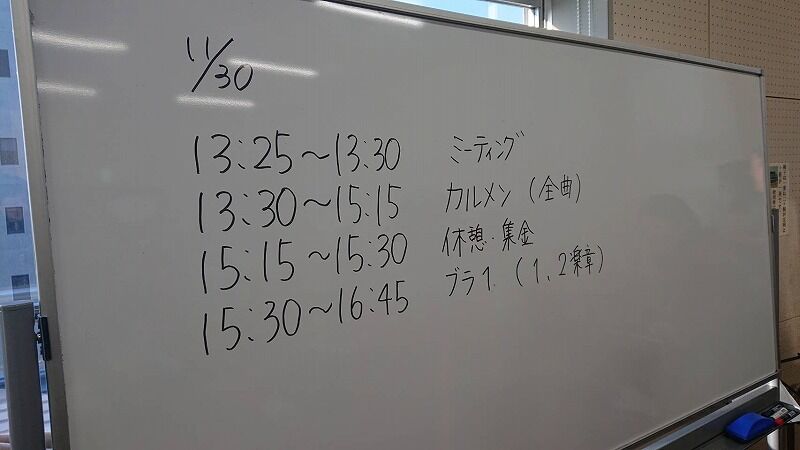 11/30
13:25～13:30 ミーティング
13:30～15:15 カルメン (全曲)
15:15～15:30 休憩・集金
15:30～16:45 ブラ1. (1、2楽章)